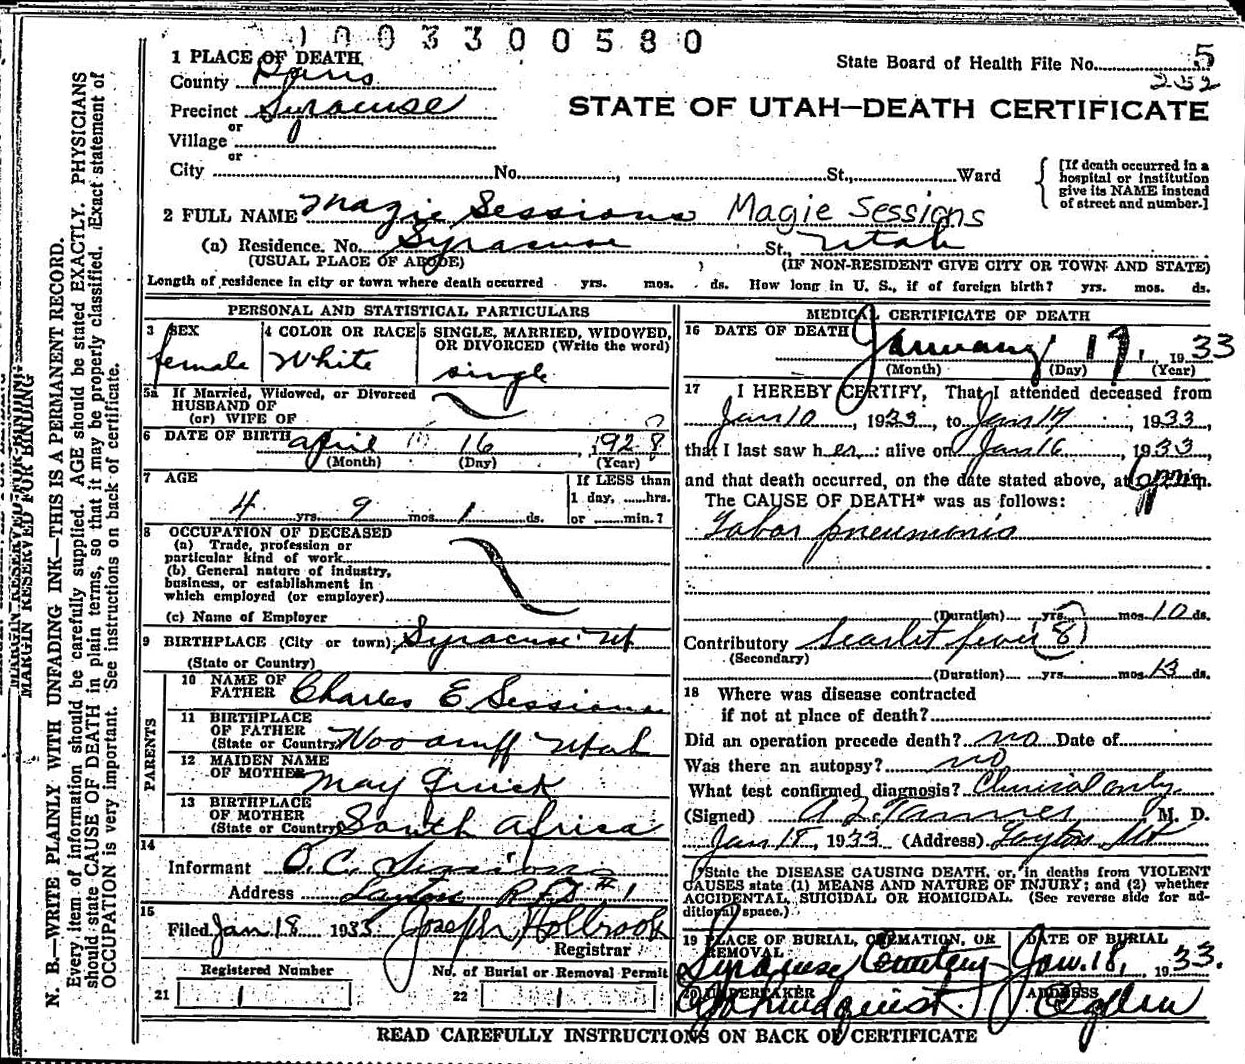 1003300580
1 PLACE OF DEATH
State Board of Health File No. 5
County Davis
232
Precinct Syracuse
STATE OF UTAH—DEATH CERTIFICATE
or
Village
or
City No. , St., Ward
[If death occurred in a hospital or institution give its NAME instead of street and number.]
2 FULL NAME Magie Sessions Magie Sessions
(a) Residence. No. Syracuse St., Utah
(USUAL PLACE OF ABODE) (IF NON-RESIDENT GIVE CITY OR TOWN AND STATE)
Length of residence in city or town where death occurred yrs. mos. ds. How long in U. S., if of foreign birth? yrs. mos. ds.
PERSONAL AND STATISTICAL PARTICULARS
3 SEX female
4 COLOR OR RACE White
5 SINGLE, MARRIED, WIDOWED, OR DIVORCED (Write the word) single
5a If Married, Widowed, or Divorced
HUSBAND OF
(or) WIFE OF
6 DATE OF BIRTH april 16, 1928
(Month) (Day) (Year)
7 AGE
4 yrs. 9 mos. 1 ds.
If LESS than
1 day, ......hrs.
or ......min.?
8 OCCUPATION OF DECEASED
(a) Trade, profession or
particular kind of work
(b) General nature of industry,
business, or establishment in
which employed (or employer)
(c) Name of Employer
9 BIRTHPLACE (City or town) Syracuse Ut
(State or Country)
PARENTS
10 NAME OF FATHER Charles E Sessions
11 BIRTHPLACE OF FATHER
(State or Country) Woodruff Utah
12 MAIDEN NAME OF MOTHER May Quick
13 BIRTHPLACE OF MOTHER
(State or Country) South Africa
14
Informant O.C. Sessions
Address Layton R.F.D #1
15
Filed Jan 18 1933 Joseph Holbrook
Registrar
Registered Number No. of Burial or Removal Permit
21 1 22 1
MEDICAL CERTIFICATE OF DEATH
16 DATE OF DEATH January 17, 1933
(Month) (Day) (Year)
17 I HEREBY CERTIFY, That I attended deceased from
Jan 10, 1933, to Jan 17, 1933,
that I last saw her alive on Jan 16, 1933
and that death occurred, on the date stated above, at 6 pm.
The CAUSE OF DEATH* was as follows:
Lobar pneumonia
(Duration) yrs. mos. 10 ds.
Contributory Scarlet fever (8)
(Secondary)
(Duration) yrs. mos. 13 ds.
18 Where was disease contracted
if not at place of death?
Did an operation precede death? no Date of
Was there an autopsy? no
What test confirmed diagnosis? Clinical only
(Signed) A Z Tanner, M. D.
Jan 18, 1933 (Address) Layton Ut
*State the DISEASE CAUSING DEATH, or, in deaths from VIOLENT
CAUSES state (1) MEANS AND NATURE OF INJURY; and (2) whether
ACCIDENTAL, SUICIDAL OR HOMICIDAL. (See reverse side for ad-
ditional space.)
19 PLACE OF BURIAL, CREMATION, OR REMOVAL DATE OF BURIAL
Syracuse Cemetery Jan. 18, 1933.
20 UNDERTAKER ADDRESS
Lindquist Ogden
READ CAREFULLY INSTRUCTIONS ON BACK OF CERTIFICATE
MARGIN RESERVED FOR BINDING
N. B.—WRITE PLAINLY WITH UNFADING INK—THIS IS A PERMANENT RECORD.
Every item of information should be carefully supplied. AGE should be stated EXACTLY. PHYSICIANS
should state CAUSE OF DEATH in plain terms, so that it may be properly classified. Exact statement of
OCCUPATION is very important. See instructions on back of certificate.